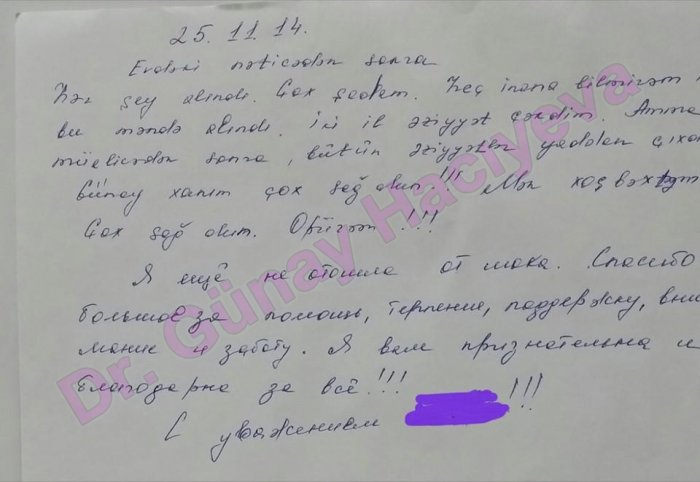 25.11.14.
Evdəki nəticədən sonra
Hər şey alındı. Çox şadam. Heç inana bilmirəm
bu məndə alındı. İki il əziyyət çəkdim. Amma
müalicədən sonra, bütün əziyyətlər yaddan çıxa
Günay xanım çox sağ olun!!! Mən xoşbəxtəm
Çox sağ olun. Öpürəm!!!
Я ещё не отошла от шока. Спасибо
большое за помощь, терпение, поддержку, вни
мание и заботу. Я вам признательна и
благодарна за всё!!! !!!
С уважением
Dr. Günay Hacıyeva